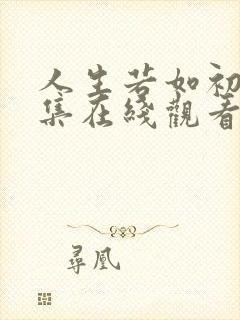 人生若如初
集在綫觀看
尋凰